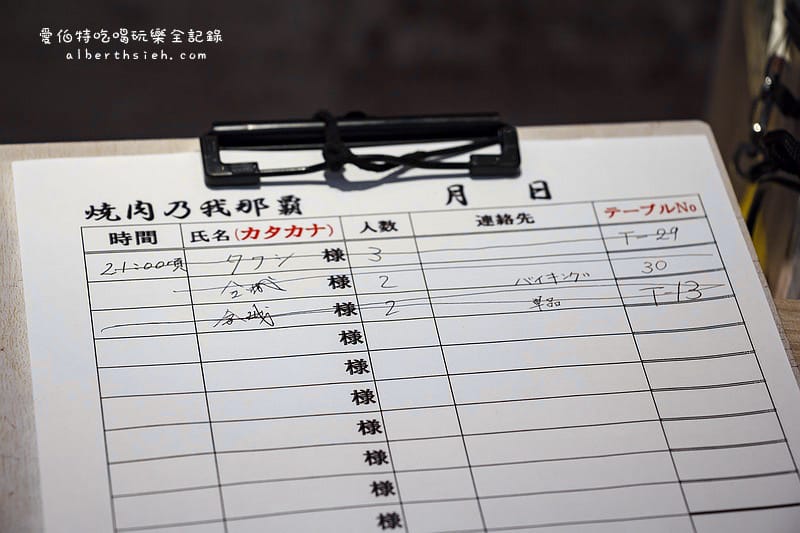 愛伯特吃喝玩樂全記錄
alberthsieh.com
焼肉乃我那覇 月 日
時間 氏名(カタカナ) 人数 連絡先 テーブルNo
21:00頃 様 3 T-29
様 2 バイキング 30
様 2 単品 T-13
様
様
様
様
様
様
様